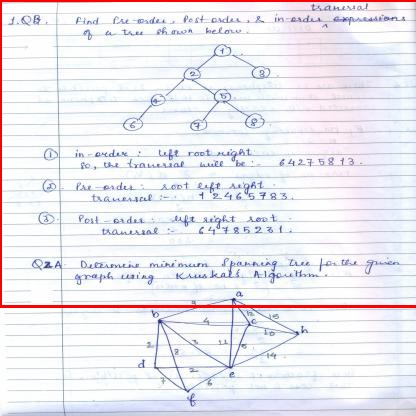 traversal
1.QB. Find Pre-order, Post order, & in-order expressions
of a tree shown below.
1
2 3
4 5
6 7 8
1 in-order: left root right
So, the traversal will be:- 64275813.
2 Pre-order: root left right
traversal :- 12465783.
3 Post-order: left right root
traversal :- 64785231.
Q2A. Determine minimum Spanning tree for the given
graph using Kruskals Algorithm.
a
9 12 15
b 4 c 10 h
2 8 3 11 5 14
d 2 e
7 6
f